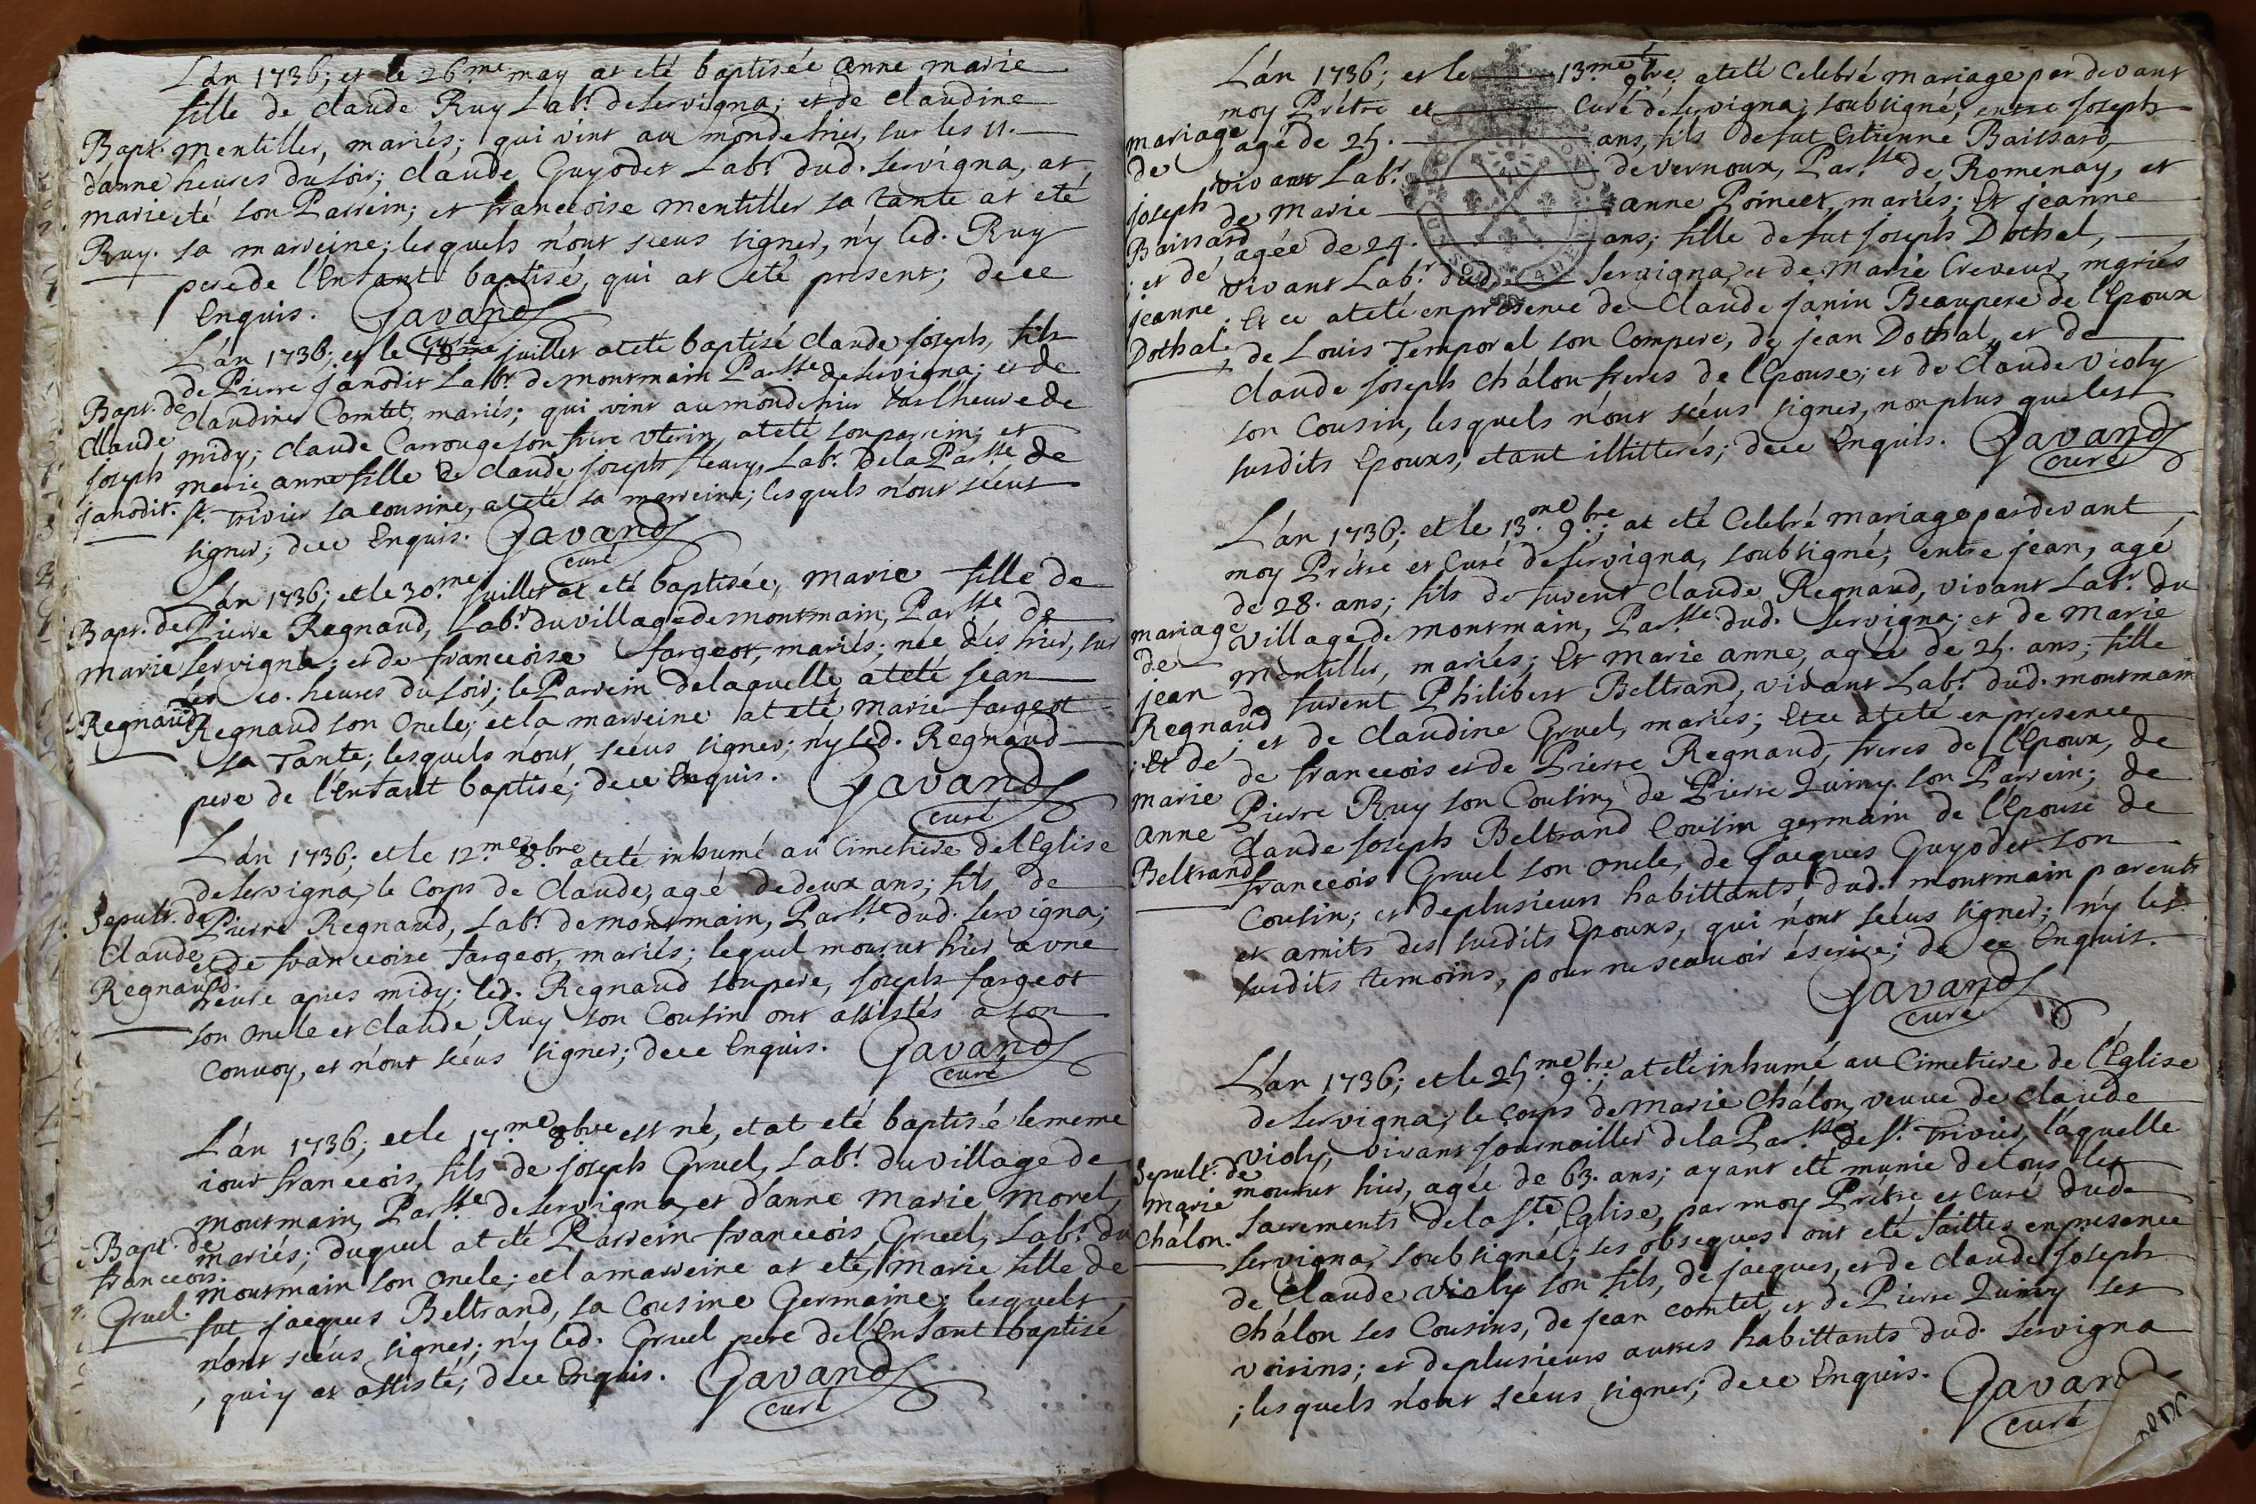 L'án 1736; et le 26.me may at eté baptisée anne marie
fille de claude Ruy Labr. de servigna; et de claudine
Bapt. mentiller, mariés; qui vint au monde hier, sur les 11.
d'anne heures du soir; claude Guyodet Labr. dud. servigna, at
marie eté son Parrein; et francoise mentiller sa tante at eté
Ruy. sa marreine; lesquels n'ont sceus signer, n'y led. Ruy
pere de l'Enfant baptisé, qui at eté present; de ce
Enquis. Gavand
curé
L'án 1736; et le 18me juillet at eté baptisé claude joseph, fils
de Pierre janodit Labr. de montmain Parsse de servigna; et de
Bapt. de claudine Comtet, mariés; qui vint au monde hier
claude midy; claude Carrouge son frere vterin, at eté son parrein; et
joseph marie anne fille de claude joseph fleury, Labr. de la Parsse de
janodit. st. trivier sa cousine, at eté sa marreine; lesquels n'ont scéus
signer; de ce Enquis. Gavand
curé
L'án 1736; et le 30.me juillet at eté baptisée, marie fille de
Bapt. de Pierre Regnaud, Labr. du village de montmain, Parsse de
marie servigna; et de francoise fargeot, mariés; née dés hier, sur
les 10. heures du soir; le Parrein de laquelle at eté jean
Regnaud Regnaud son Oncle; et la marreine at eté marie fargeot
sa Tante; lesquels n'ont scéus signer; n'y led. Regnaud
pere de l'Enfant baptisé; de ce Enquis. Gavand
curé
L'án 1736; et le 12.me 8.bre at eté inhumé au Cimetiere de l'Eglise
de servigna, le Corps de Claude, agé de deux ans; fils de
Sepult. de Pierre Regnaud, Labr. de montmain, Parsse dud. servigna;
Claude et de francoise fargeot, mariés; lequel mourut hier a vne
Regnaud. heure apres midy; led. Regnaud son pere, joseph fargeot
son oncle et claude Ruy son Cousin ont assistés a son
convoy, et n'ont scéus signer; de ce Enquis. Gavand
curé
L'án 1736; et le 17.me 8bre est né, et at eté baptisé le meme
iour francois, fils de joseph Gruel, Labr. du village de
montmain, Parsse de servigna, et d'anne marie morel,
Bapt. de mariés; duquel at eté Parrein francois Gruel, Labr. du
francois montmain son oncle; et la marreine at eté, marie fille de
Gruel. fut jacques Beltrand, sa Cousine Germaine; lesquels
n'ont scéus signer; n'y led. Gruel pere de l'Enfant baptisé
, qui y at assisté; de ce Enquis. Gavand
curé
L'án 1736; et le 13.me 9bre; at eté Celebré mariage par devant
moy Prétre et Curé de servigna; soubsigné; entre joseph
mariage agé de 25. ans, fils de fut Estienne Baissard
de vivant Labr. de vernoux, Parsse de Romenay, et
joseph de marie anne Poincet, mariés; Et jeanne
Baissard agée de 24. ans; fille de fut joseph Dothal,
; et de vivant Labr. dud. servigna; et de marie Creveur, mariés
jeanne Et ce at eté en presence de Claude janin Beaupere de l'Epoux
Dothal. de Louis Temporal son Compere, de jean Dothal, et de
claude joseph Chálon freres de l'Epouse; et de Claude Violy
son Cousin, lesquels n'ont scéus signer, non plus que les
susdits Epoux, etant illitterés; de ce Enquis. Gavand
curé
L'án 1736; et le 13.me 9.bre; at eté Celebré mariage par devant
moy Prétre et Curé de servigna, soubsigné; entre jean, agé
de 28. ans; fils de furent Claude Regnaud, vivant Labr. du
mariage village de montmain, Parsse dud. servigna; et de marie
de mentiller, mariés; Et marie anne, agée de 25. ans; fille
jean de furent Philibert Beltrand, vivant Labr. dud. montmain
Regnaud ; et de claudine Gruel, mariés; Et ce at eté en presence
; Et de de francois et de Pierre Regnaud, freres de l'Epoux, de
marie Pierre Ruy son Cousin, de Pierre Quiny son Parrein; de
anne claude joseph Beltrand Cousin germain de l'Epouse de
Beltrand francois Gruel son oncle, de jacques Guyodet son
Cousin; et de plusieurs habittants dud. montmain parents
et amits des susdits Epoux, qui n'ont scéus signer; n'y les
susdits temoins, pour ne scavoir éscrire; de ce Enquis.
Gavand
curé
L'án 1736; et le 25.me 9.bre; at eté inhumé au Cimetiere de l'Eglise
de servigna; le Corps de Marie Chálon, veuve de claude
violy, vivant journaillier de la Parsse de st. Trivier, laquelle
Sepult. de mourut hier, agée de 63. ans; ayant eté munie de tous les
marie sacrements de la ste. Eglise, par moy Prétre et Curé dude
Chálon. servigna, soubsigné; ses obseques ont eté faittes en presence
de Claude violy son fils, de jacques, et de claude joseph
Chálon ses Cousins, de jean comtet, et de Pierre Quiny ses
voisins; et de plusieurs autres habittants dud. servigna
; lesquels n'ont scéus signer; de ce Enquis. Gavand
curé